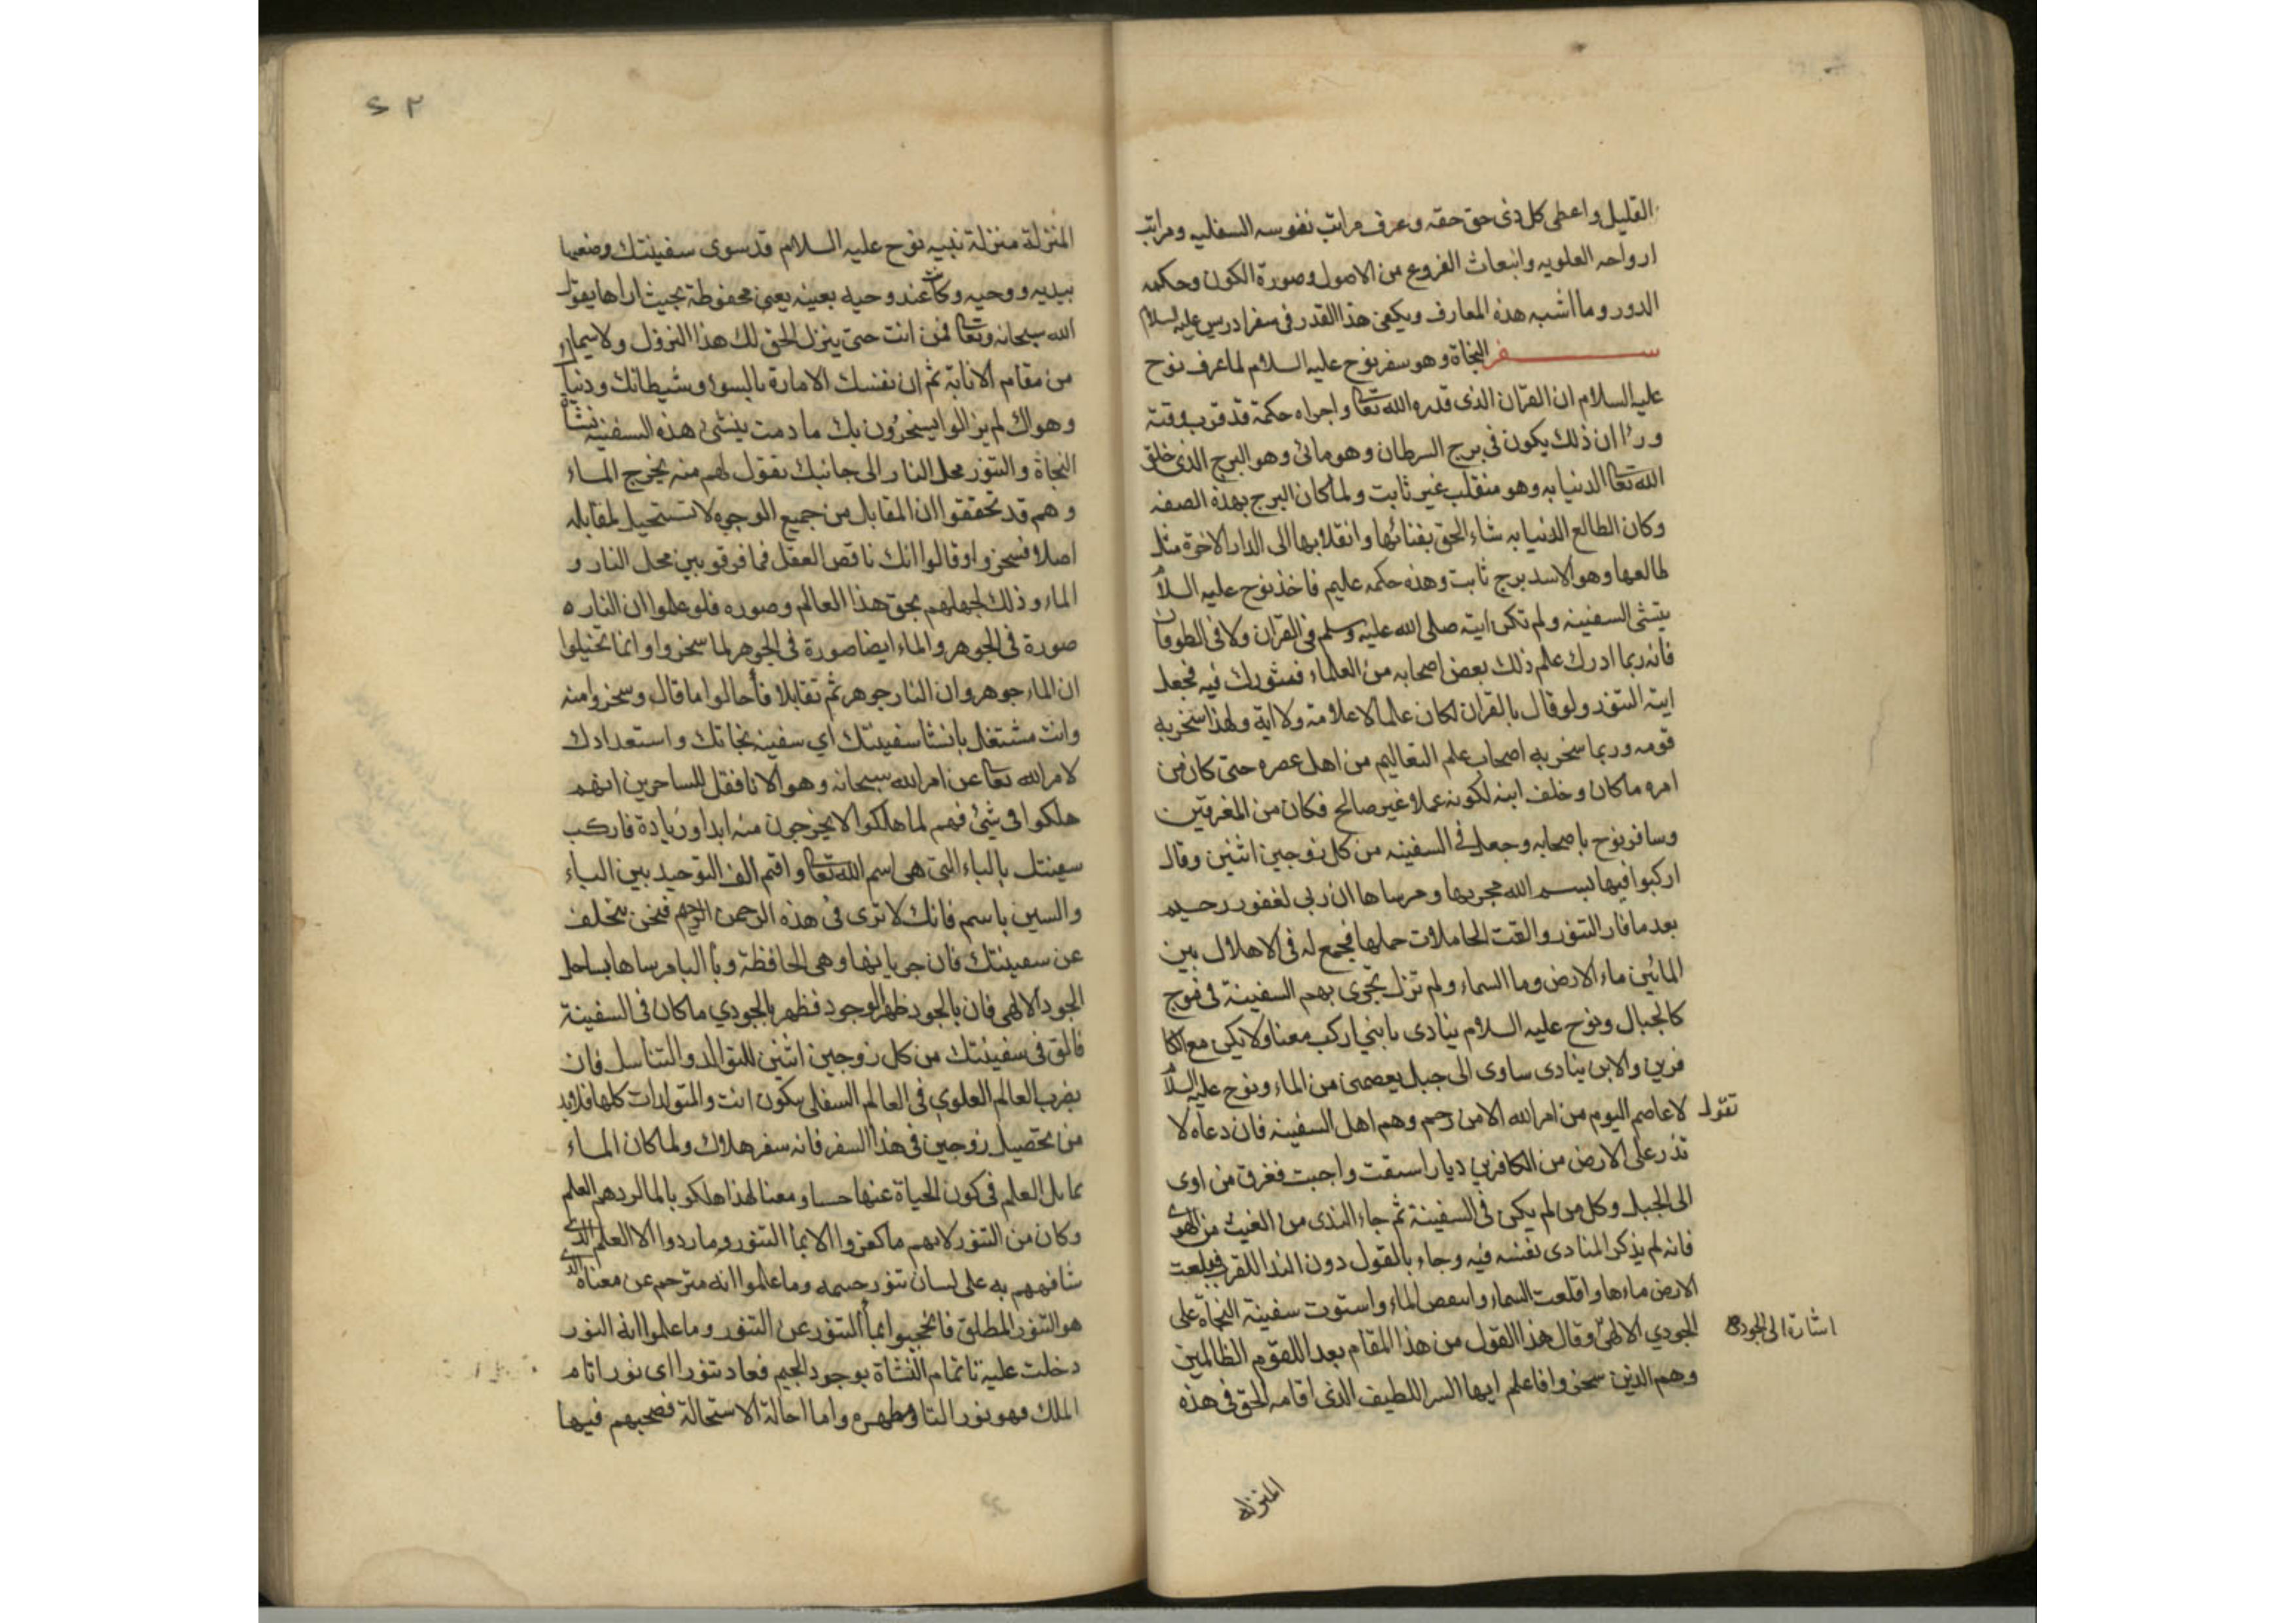 القليل واعطى كل ذى حق حقه وعرف مراتب نفوسه السفليه ومراتب
ارواحه العلويه وانبعاث الفروع من الاصول وصورة الكون وحكمه
الدور وما أشبه هذه المعارف ويكفى هذا القدر فى سفر ادريس عليه السلام
سفر النجاة وهو سفر نوح عليه السلام لما عرف نوح
عليه السلام ان القران الذى قدره الله تعا واجراه حكمة قد قرب وقته
وراا ان ذلك يكون فى برج السرطان وهو مائى وهو البرج الذى خلق
الله تعا الدنيا به وهو منقلب غير ثابت ولما كان البرج بهذه الصفه
وكان الطالع الدنيا به شاء الحق بفنائها وانقلابها الى الدار الاخرة مثل
طالعها وهو الاسد برج ثابت وهذه حكمه عليم فاخذ نوح عليه السلام
ينشى السفينه ولم تكن ايته صلى الله عليه وسلم فى القران ولا فى الطوفان
فانه ربما ادرك علم ذلك بعض اصحابه من العلماء فشورك فيه فجعل
ايته التنور ولو قال بالقران لكان علما لا علامة ولا اية ولهذا سخر به
قومه وربما سخر به اصحاب علم التعاليم من اهل عصره حتى كان من
امره ما كان وخلف ابنه لكونه عملا غير صالح فكان من المغرقين
وسافر نوح باصحابه وجعل فى السفينه من كل زوجين اثنين وقال
اركبوا فيها بسم الله مجريها ومرساها ان ربى لغفور رحيم
بعد ما فار التنور والقت الحاملات حملها فجمع له فى الاهلال بين
المائين ماء الارض وما السماء ولم تزل تجرى بهم السفينة فى موج
كالجبال ونوح عليه السلام ينادى يا بنى اركب معنا ولا تكن مع الكا
فرين والابن ينادى ساوى الى جبل يعصمنى من الماء ونوح عليه السلام
تقول لا عاصم اليوم من امر الله الا من رحم وهم اهل السفينه فان دعاه لا
تذر على الارض من الكافرين ديارا سبقت واجبت فغرق من اوى
الى الجبل وكل من لم يكن فى السفينة ثم جاء الندى من الغيث من الهوى
فانه لم يذكر المنادى نفسه فيه وجاء بالقول دون الندا للقرب فبلعت
الارض ماءها واقلعت السماء وانتقص الماء واستوت سفينة النجاة على
الجودي الالهى وقال هذا القول من هذا المقام بعدا للقوم الظالمين
اشارة الى الجود
وهم الذين سخروا فاعلم ايها السر اللطيف الذى اقامه الحق فى هذه
المنزله
٤٢
المنزلة منزلة نبيه نوح عليه السلام قد سوى سفينتك وضعها
بيديه ووحيه وكانت عند وحيه بعينه يعنى محفوظة بحيث اراها يقول
الله سبحانه وتعا فمن انت حتى ينزل الحق لك هذا النزول ولا سيما
من مقام الانابة ثم ان نفسك الامارة بالسوء وشيطانك ودنياك
وهواك لم يزالوا يسخرون بك ما دمت ينشئ هذه السفينه نشأ
النجاة والتنور محل النار الى جانبك تقول لهم منه يخرج الماء
وهم قد تحققوا ان المقابل من جميع الوجوه لا تستحيل لمقابله
اصلا فسخروا وقالوا انك ناقص العقل فما فرقو بين محل النار و
الماء وذلك لجهلهم بحق هذا العالم وصوره فلو علموا ان النار ه
صورة فى الجوهر والماء ايضا صورة فى الجوهر لما سخروا وانما تخيلوا
ان الماء جوهر وان النار جوهر ثم تقابلا فأحالوا ما قال وسخروا منه
وانت مشتغل بانشا سفينتك اي سفينه نجاتك واستعدادك
لامر الله تعا عن امر الله سبحانه وهو الانا فقل للساخرين انهم
هلكوا فى شئ فهم لما هلكوا لا يخرجون منه ابدا وزيادة فاركب
سفينتك بالباء التى هى اسم الله تعا واقم الف التوحيد بين الباء
والسين باسم فانك لا ترى فى هذه الرحمن الرحيم فنحن بتخلف
عن سفينتك فان جريانها وهى الحافظة وبا البا مرساها بساحل
الجود الالهى فان بالجود ظهر الوجود فظهر بالجودي ما كان فى السفينة
فالق فى سفينتك من كل زوجين اثنين للتوالد والتناسل فان
بضرب العالم العلوي فى العالم السفلى يتكون انت والمتولدات كلها فلابد
من تحصيل زوجين فى هذا السفر فانه سفر هلاك ولما كان الماء
يماثل العلم فى كون الحياة عنها حسا ومعنا لهذا هلكو بالما لردهم العلم
وكان من التنور لانهم ما كفروا الا بما التنور وما ردوا الا العلم الذى
شافههم به على لسان تنور جسمه وما علموا انه مترجم عن معناه الذى
هو التنور المطلق فانحجبوا بما التنور عن التنور وما علموا انه النور
دخلت عليه تا تمام النشاة بوجود الجيم فعاد تنورا اى نورا تام
الملك فهو نور التا ومظهره واما احالة الاستحالة فصحبهم فيها